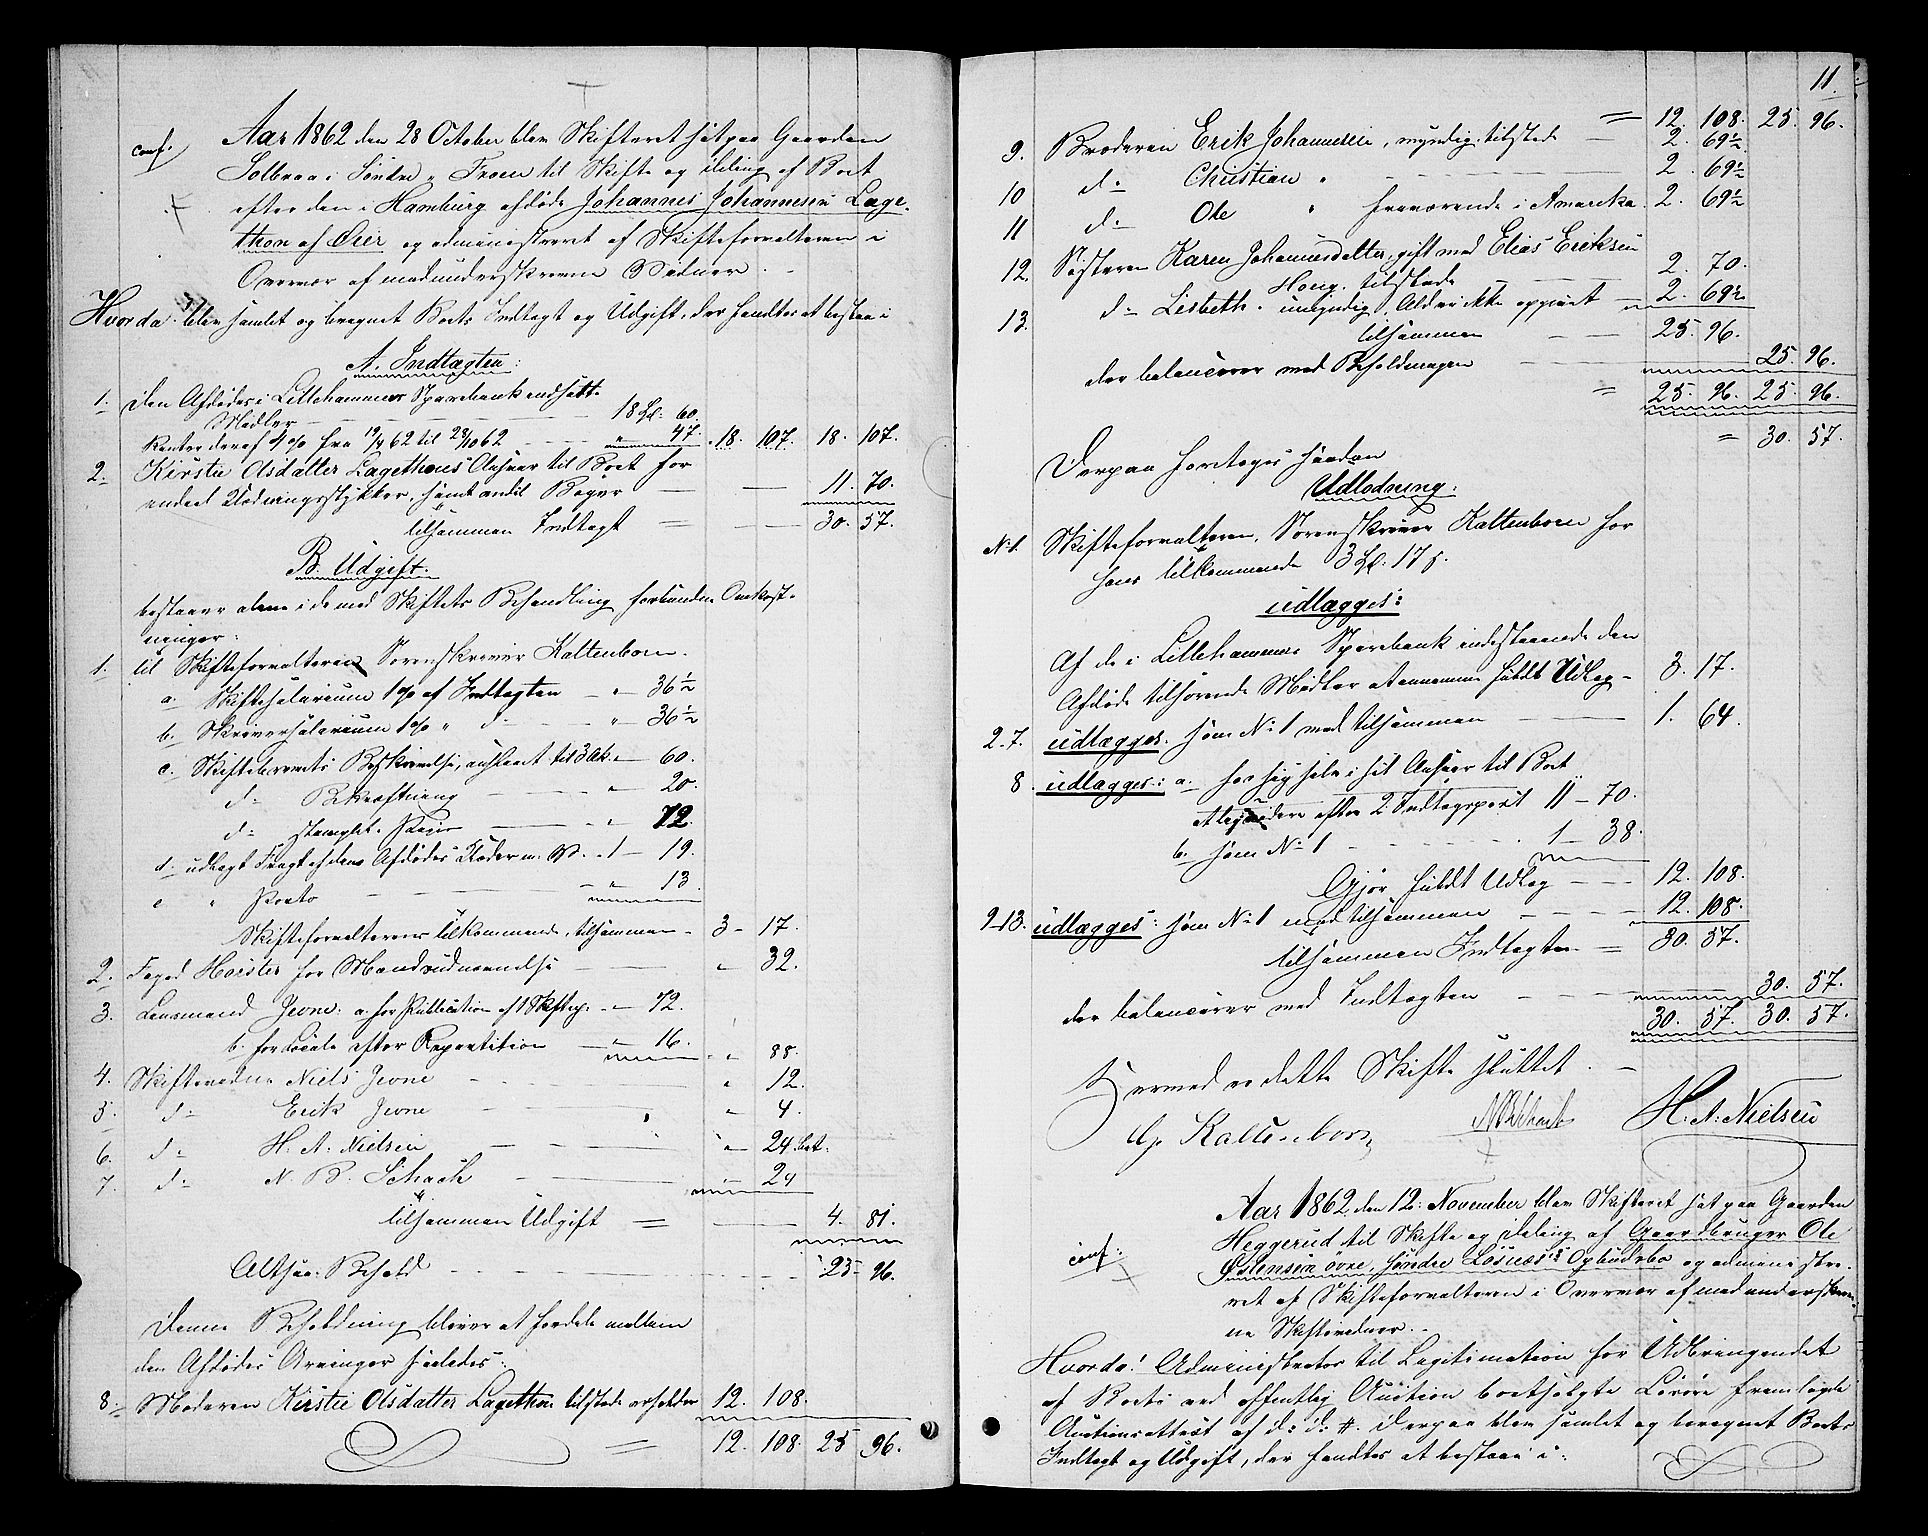 conf. Aar 1862 den 28 October blev Skifteret sat paa Gaarden
Solbraa i Søndre Froen til Skifte og Deling af Boet
efter den i Hamburg afdøde Johannes Johannesen Lage-
thon af Øier og administreret af Skifteforvalteren i
Overvær af medunderskrevne Vidner.
Hvorda blev samlet og beregnet Boets Indtægt og Udgift, der fandtes at bestaa i
A. Indtægten:
1. Den Afdødes i Lillehammers Sparebank indsatte
Midler 18 Spd. 60.
Renter deraf 4 % fra 19/4 62 til 28/10 62 " 47. 18. 107. 18. 107.
2. Kirstie Olsdatter Lagethons Ansvar til Boet for
endeel Klædningsstykker, samt endel Bøger 11. 70.
tilsammen Indtægt = 30. 57.
B. Udgift.
bestaaer alene i de med Skiftets Behandling forbundne Omkost-
ninger:
1. til Skifteforvalteren Sorenskriver Kaltenborn.
a. Skiftesalarium 1 % af Indtægten " 36½
b. Skriversalarium 1 % " d: " 36½
c. Skiftebrevets Beskrivelse, anslaaet til 3 Ark " 60.
d: Bekræftning " 20.
d: stemplet Papir " 72.
d. udlagt Fragt af den Afdødes Klæder m. V. 1 19.
e " Porto " 13.
Skifteforvalterens Tilkommende, tilsammen 3 17.
2. Foged Horster for Mandsudnævnelse " 32.
3. Lensmand Jevne: a. for Publication af 1 Skiftep. " 72.
b. for Locale efter Repartition " 16. " 88.
4. Skiftevidne Niels Jevne " 12.
5. d: Erik Jevne " 4.
6. d: H. A. Nielsen " 24. bet.
7. d: N. B. Schach " 24
tilsammen Udgift = 4. 81.
Altsaa Behold 25 96.
Denne Beholdning bliver at fordele mellem
den Afdødes Arvinger saaledes:
8. Moderen Kirstie Olsdatter Lagethon tilstede erholder 12. 108.
= 12. 108. 25 96.
11.
= 12. 108. 25. 96.
9. Broderen Erik Johannesen, myndig, tilstede 2. 69½
10 d: Christian " 2. 69½
11 d: Ole " fraværende i Amerika 2. 69½
12. Søsteren Karen Johannesdatter, gift med Elias Eriksen
Houg, tilstede 2. 70.
13. d: Lisbeth " umyndig, Alder ikke opgivet 2. 69½
tilsammen 25. 96.
der balancerer med Beholdningen 25. 96.
= 25. 96. 25. 96.
= 30. 57.
Derpaa foretoges saadan
Udlodning:
No 1. Skifteforvalteren, Sorenskriver Kaltenborn for
hans tilkommende 3 Spd. 17 s.
udlægges:
Af de i Lillehammers Sparebank indestaaende den
Afdøde tilhørende Midler at annamme fuldt Udlæg 3. 17.
2-7. udlægges som No 1 med tilsammen 1. 64.
8. udlægges: a. for sig selv i sit Ansvar til Boet
at liquidere efter 2. Indtægtspost 11 – 70.
b. som No 1 1 – 38.
Gjør fuldt Udlæg 12. 108.
9-13. udlægges: som No 1 med tilsammen 12. 108.
tilsammen Indtægten = 30. 57.
der balancerer med Indtægten 30. 57.
30. 57. 30. 57.
Hermed er dette Skifte sluttet.
Kaltenborn N B Schach H. A. Nielsen
conf: Aar 1862, den 12. November blev Skifteret sat paa Gaarden
Heggerud til Skifte og Deling af Gaardbruger Ole
Østensen øvre, søndre Losnæs's Opbudsbo og administre-
ret af Skifteforvalteren i Overvær af medunderskrev-
ne Skiftevidner.
Hvorda! Administrator til Legitimation for Udbringendet
af Boets ved offentlig Auction bortsolgte Løsøre fremlagde
Auctionsattest af d: d: #. Derpaa blev samlet og beregnet Boets
Indtægt og Udgift, der fandtes at bestaa i: